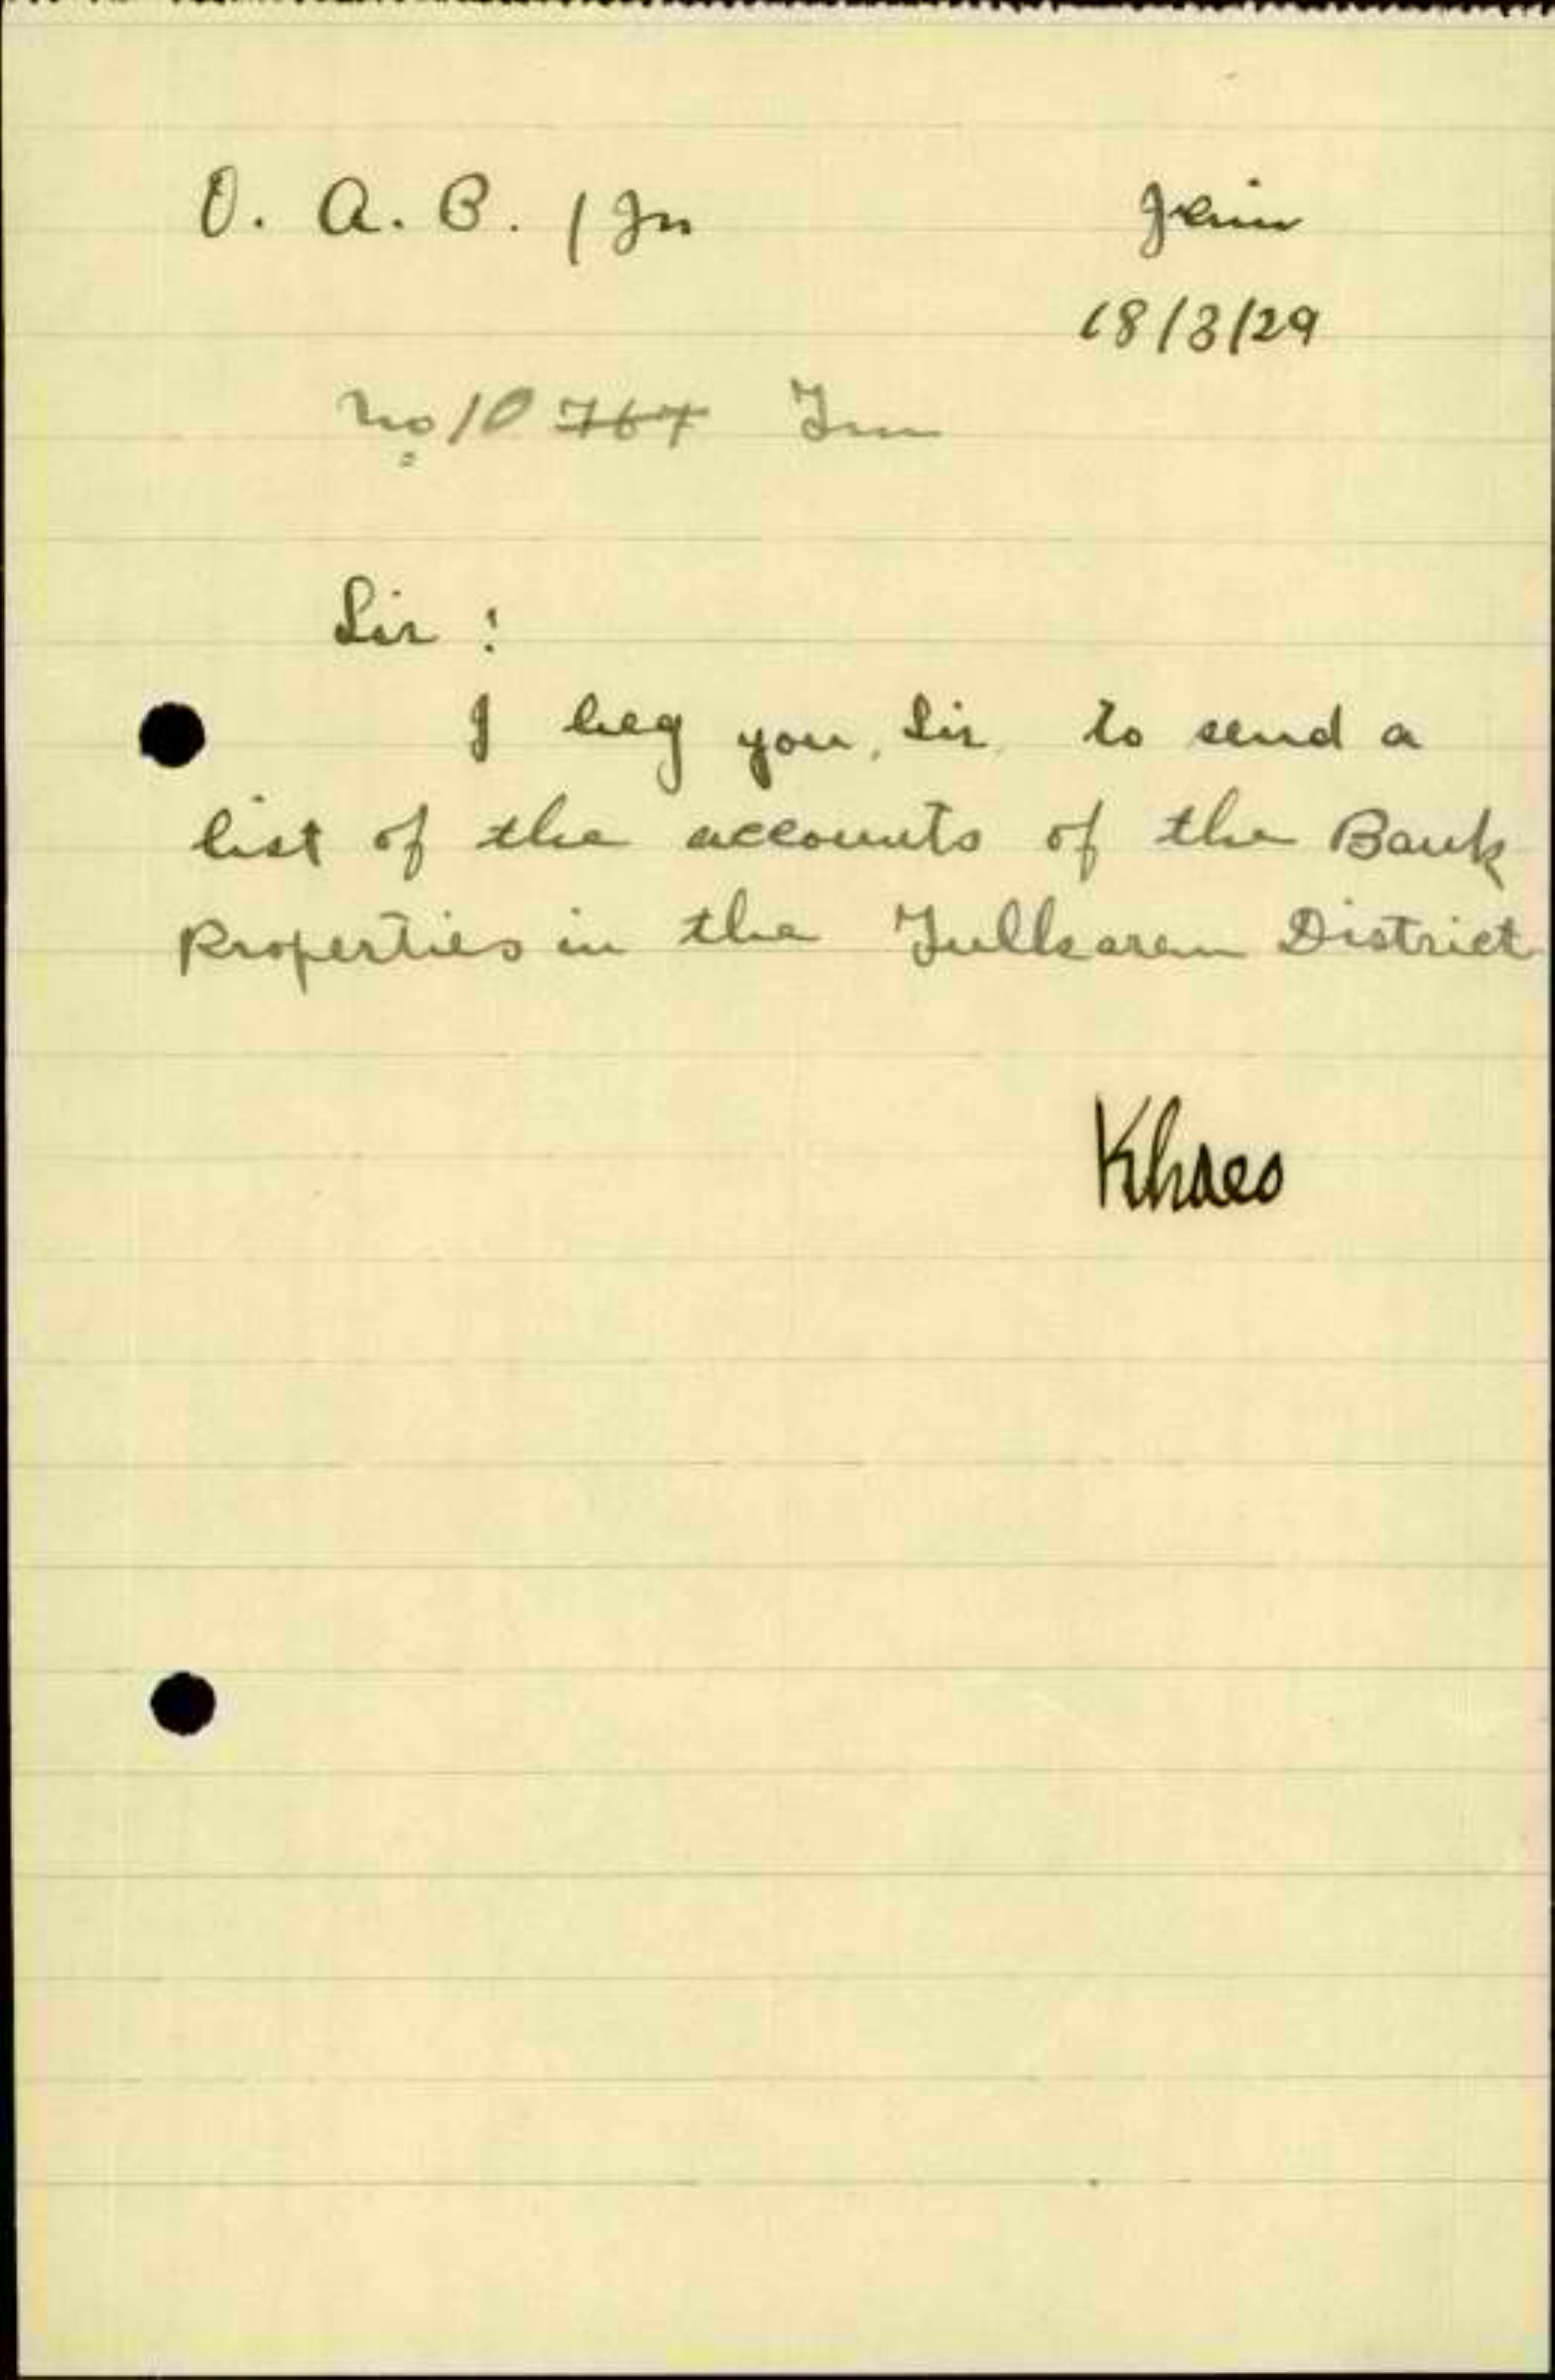 O. A. B. / Jn Jenin
18/3/29
No 10 767
Sir :
I beg you, Sir, to send a
list of the accounts of the Bank
Properties in the Tulkarem District